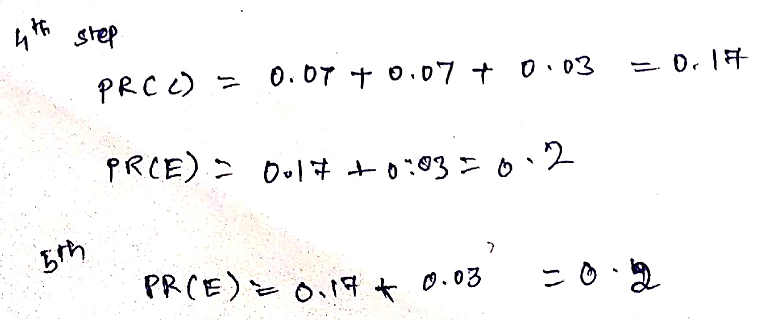 4th step
PR(C) = 0.07 + 0.07 + 0.03 = 0.17
PR(E) = 0.17 + 0.03 = 0.2
5th
PR(E) = 0.17 + 0.03 = 0.2